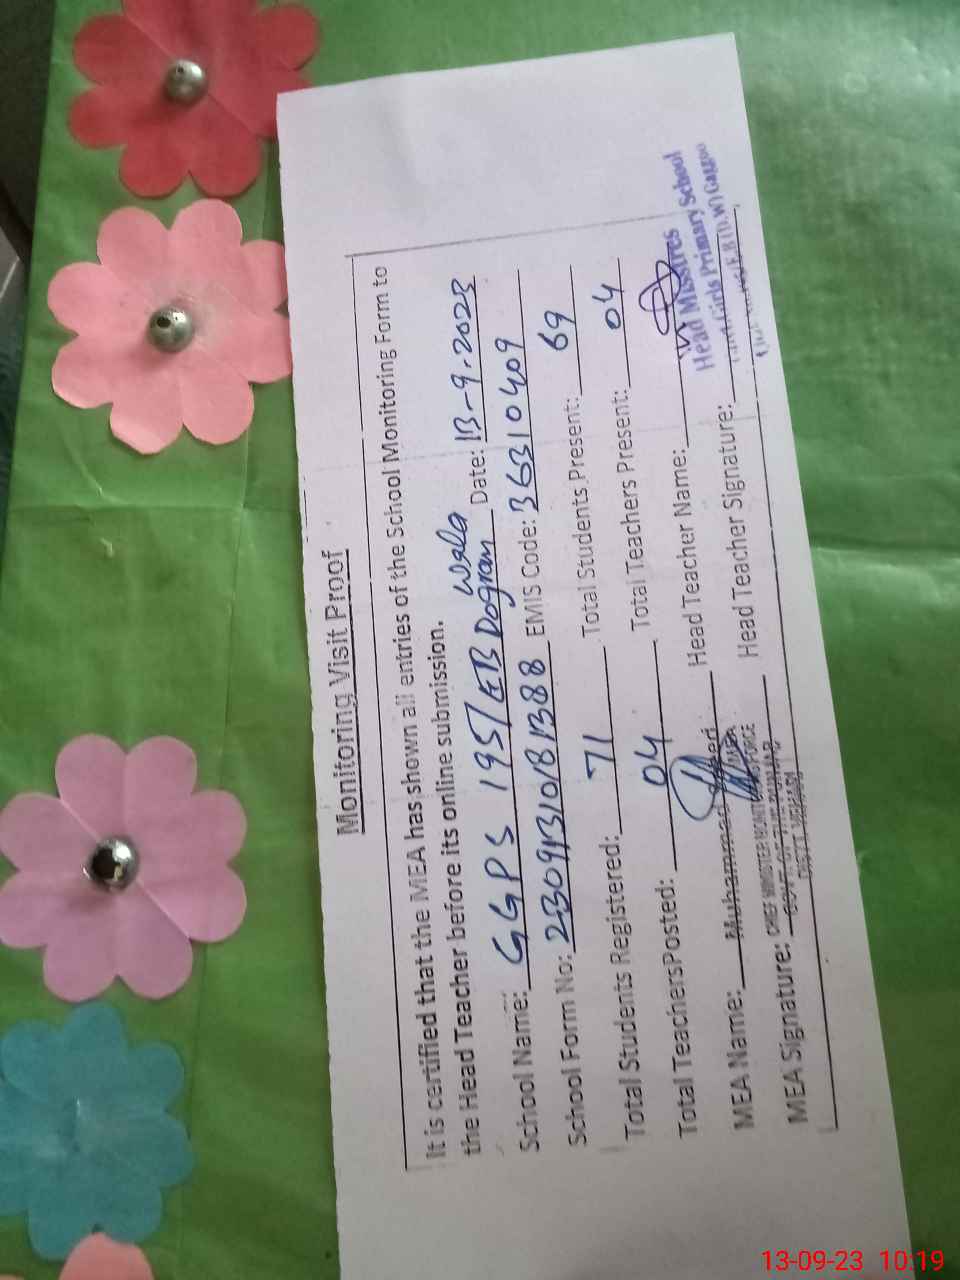 Monitoring Visit Proof
It is certified that the MEA has shown all entries of the School Monitoring Form to
the Head Teacher before its online submission.
School Name: GGPS 195/EB Dogram wala Date: 13-9-2023
School Form No: EMIS Code: 36310409
Total Students Registered: 71 Total Students Present: 69
Total TeachersPosted: 04 Total Teachers Present: 04
MEA Name: Muhammad Head Teacher Name:
MEA Signature: Head Teacher Signature:
CHIEF MINISTER MONITORING FORCE
GOVT OF THE PUNJAB
Head Misstres
Girls Primary School
13-09-23 10:19